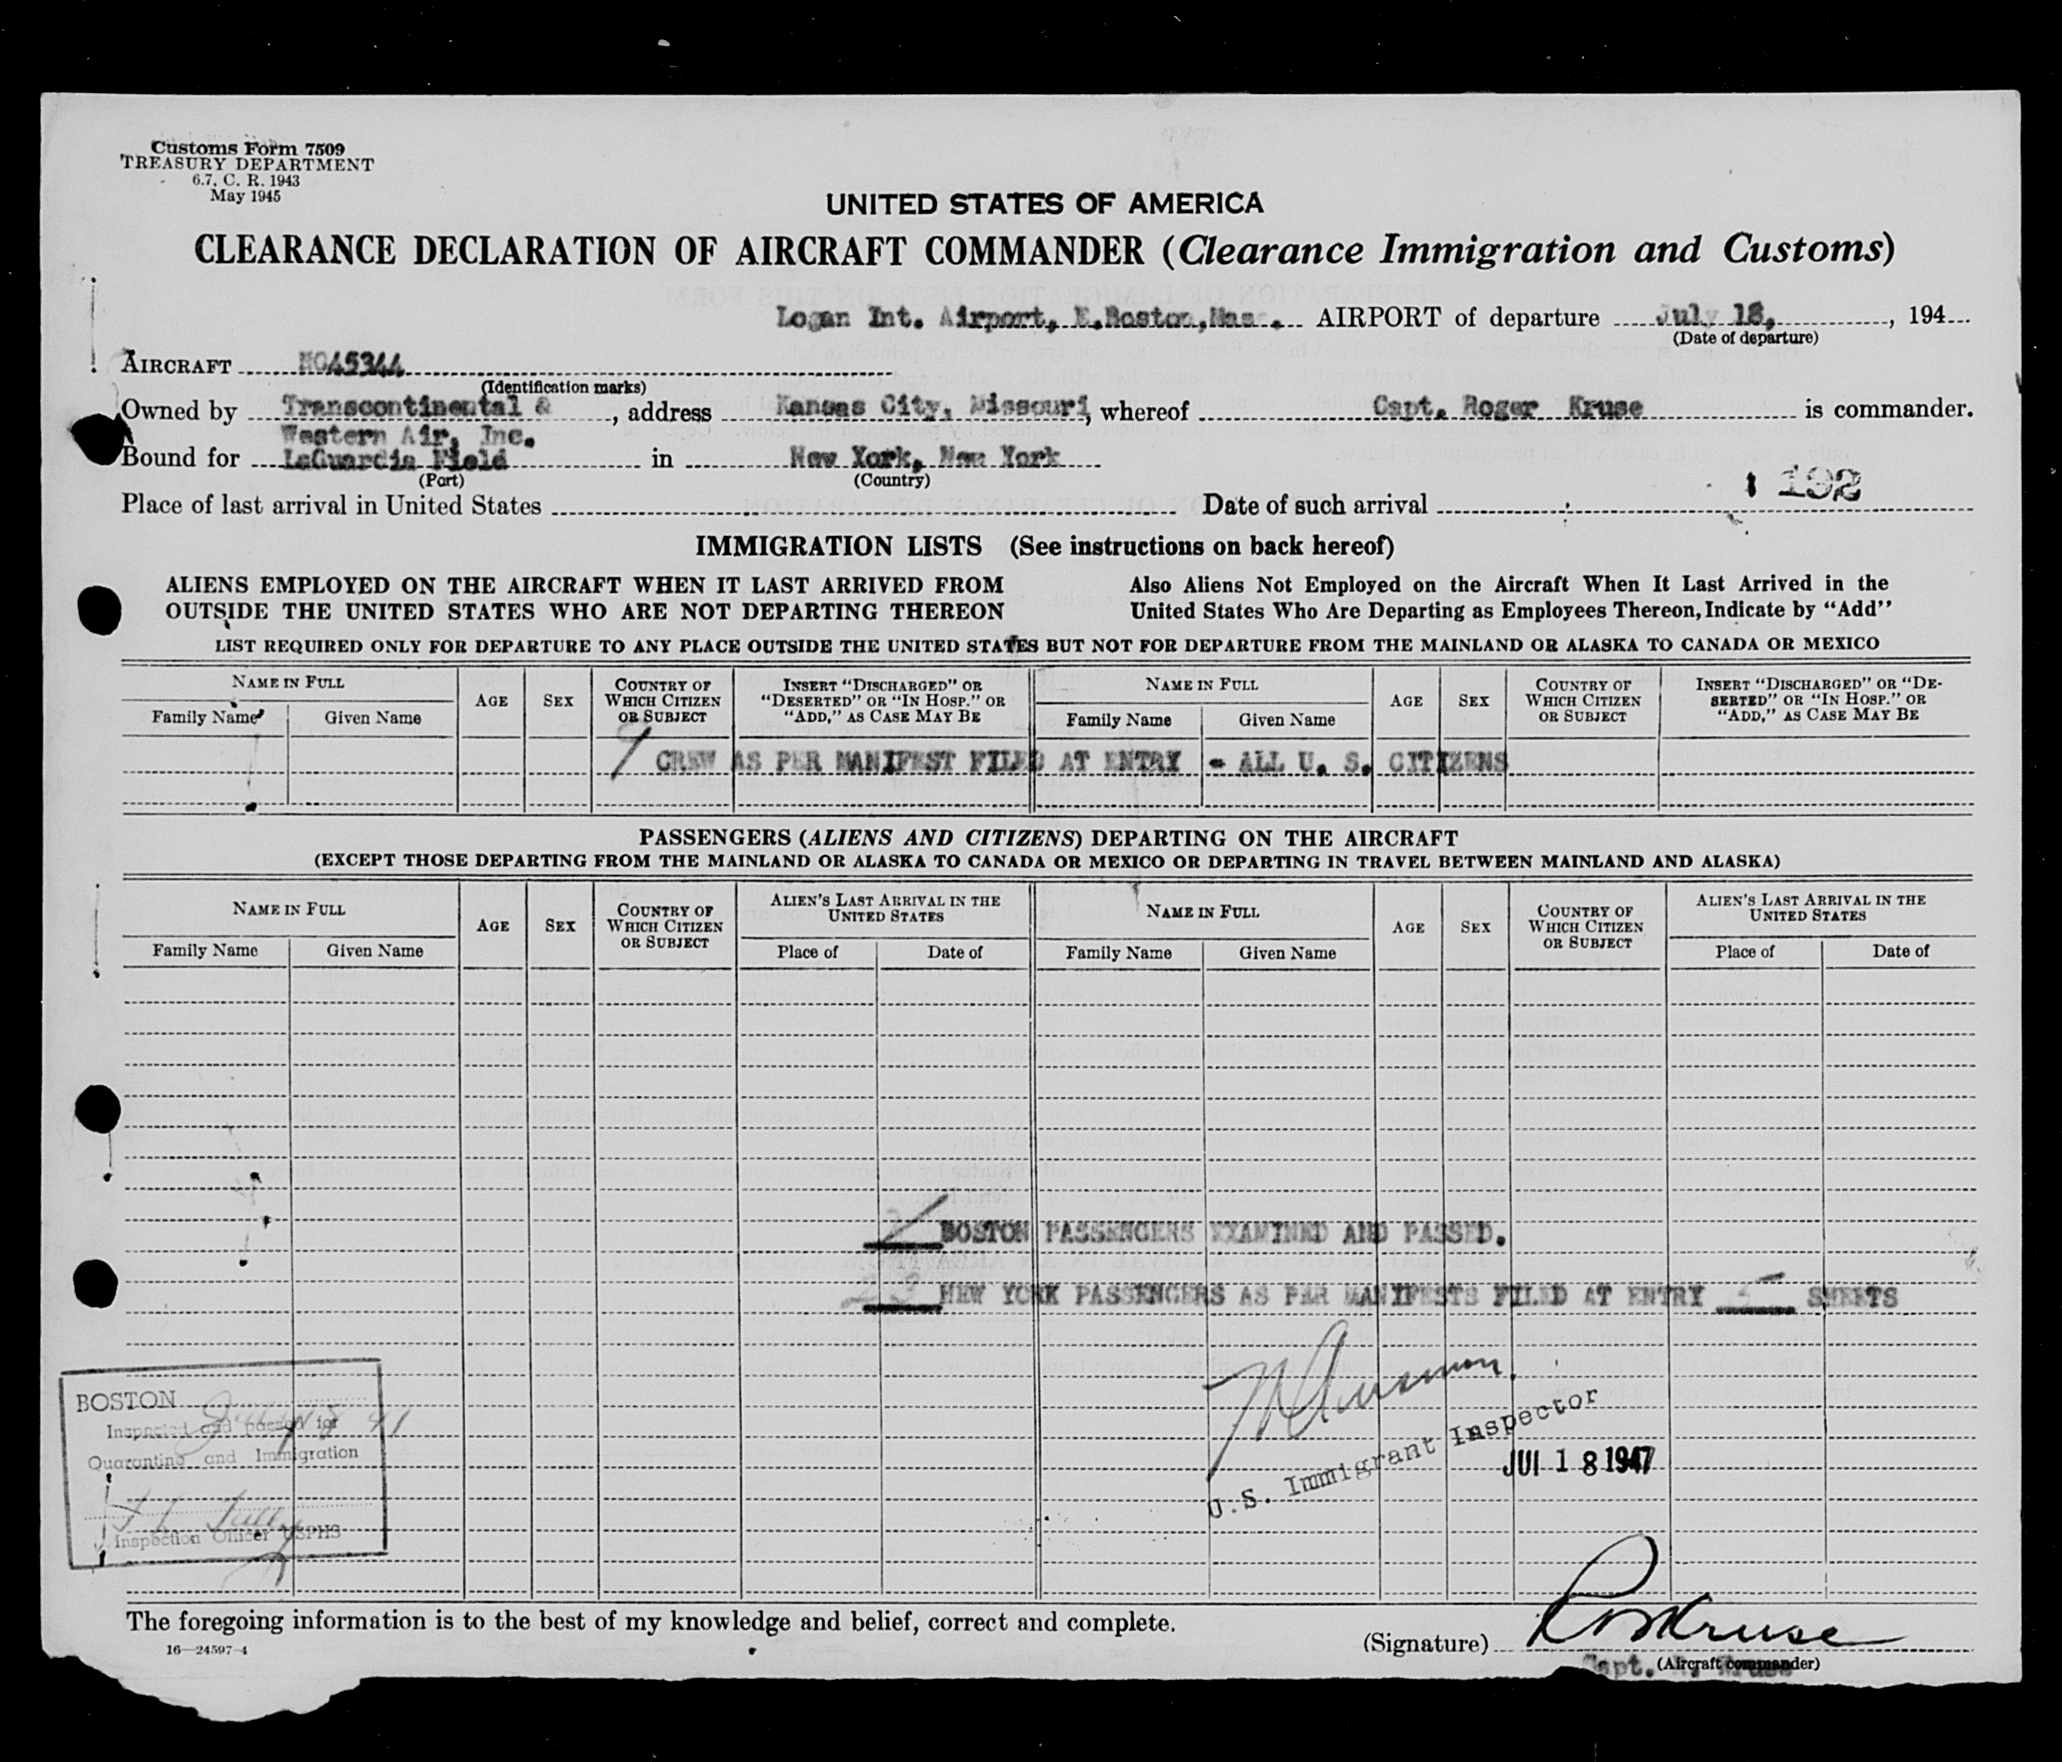 Customs Form 7509
TREASURY DEPARTMENT
6.7, C. R. 1943
May 1945
UNITED STATES OF AMERICA
CLEARANCE DECLARATION OF AIRCRAFT COMMANDER (Clearance Immigration and Customs)
Logan Int. Airport, E.Boston, Mass. AIRPORT of departure July 18, , 194
(Date of departure)
AIRCRAFT NC45344
(Identification marks)
Owned by Transcontinental & , address Kansas City, Missouri, whereof Capt. Roger Kruse is commander.
Western Air, Inc.
Bound for LaGuardia Field in New York, New York
(Port) (Country)
192
Place of last arrival in United States Date of such arrival
IMMIGRATION LISTS (See instructions on back hereof)
ALIENS EMPLOYED ON THE AIRCRAFT WHEN IT LAST ARRIVED FROM Also Aliens Not Employed on the Aircraft When It Last Arrived in the
OUTSIDE THE UNITED STATES WHO ARE NOT DEPARTING THEREON United States Who Are Departing as Employees Thereon, Indicate by "Add"
LIST REQUIRED ONLY FOR DEPARTURE TO ANY PLACE OUTSIDE THE UNITED STATES BUT NOT FOR DEPARTURE FROM THE MAINLAND OR ALASKA TO CANADA OR MEXICO
NAME IN FULL AGE SEX COUNTRY OF INSERT "DISCHARGED" OR NAME IN FULL AGE SEX COUNTRY OF INSERT "DISCHARGED" OR "DE-
WHICH CITIZEN "DESERTED" OR "IN HOSP." OR WHICH CITIZEN SERTED" OR "IN HOSP." OR
Family Name Given Name OR SUBJECT "ADD," AS CASE MAY BE Family Name Given Name OR SUBJECT "ADD," AS CASE MAY BE
9 CREW AS PER MANIFEST FILED AT ENTRY - ALL U. S. CITIZENS
PASSENGERS (ALIENS AND CITIZENS) DEPARTING ON THE AIRCRAFT
(EXCEPT THOSE DEPARTING FROM THE MAINLAND OR ALASKA TO CANADA OR MEXICO OR DEPARTING IN TRAVEL BETWEEN MAINLAND AND ALASKA)
NAME IN FULL AGE SEX COUNTRY OF ALIEN'S LAST ARRIVAL IN THE NAME IN FULL AGE SEX COUNTRY OF ALIEN'S LAST ARRIVAL IN THE
WHICH CITIZEN UNITED STATES WHICH CITIZEN UNITED STATES
OR SUBJECT OR SUBJECT
Family Name Given Name Place of Date of Family Name Given Name Place of Date of
BOSTON PASSENGERS EXAMINED AND PASSED.
23 NEW YORK PASSENGERS AS PER MANIFESTS FILED AT ENTRY 5 SHEETS
BOSTON
Inspected and passed for
Quarantine and Immigration
Inspection Officer USPHS
U.S. Immigrant Inspector
JUL 18 1947
The foregoing information is to the best of my knowledge and belief, correct and complete.
(Signature) R M Kruse
16—24597-4
Capt. R. Kruse
(Aircraft commander)